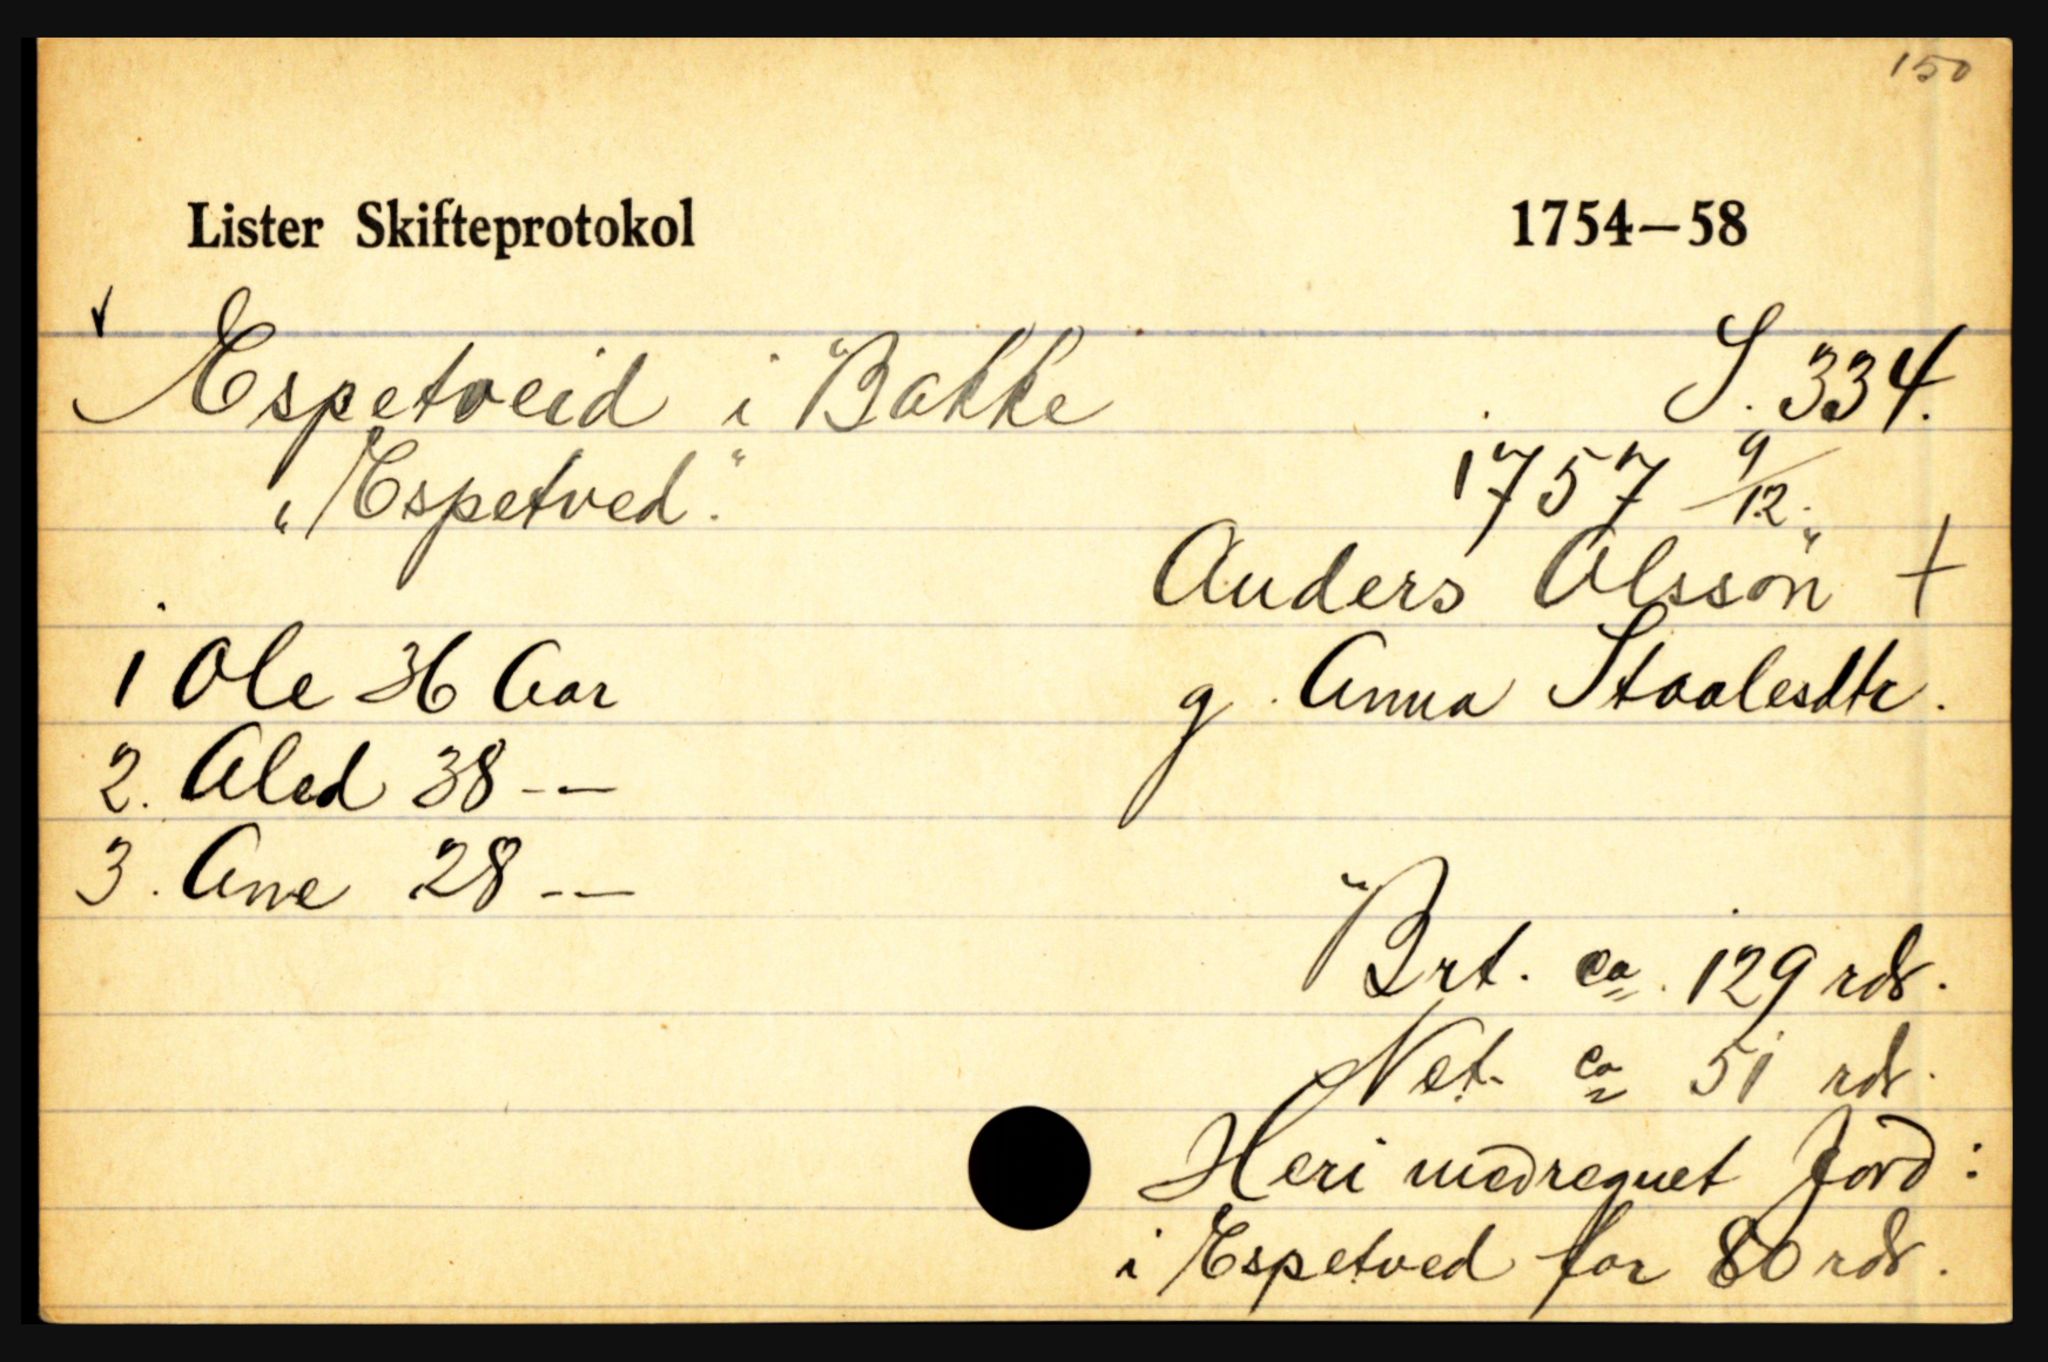 150
Lister Skifteprotokol 1754—58
Espetveid i Bakke S. 334.
„Espetved." 1757 9/12.
Anders Olssön +
1 Ole 36 Aar g. Anna Staalesdtr.
2. Aled 38 --
3. Ane 28 --
Brt. ca. 129 rdr.
Net. ca 51 rdr.
Heri medregnet Jord:
i Espetved for 80 rdr.